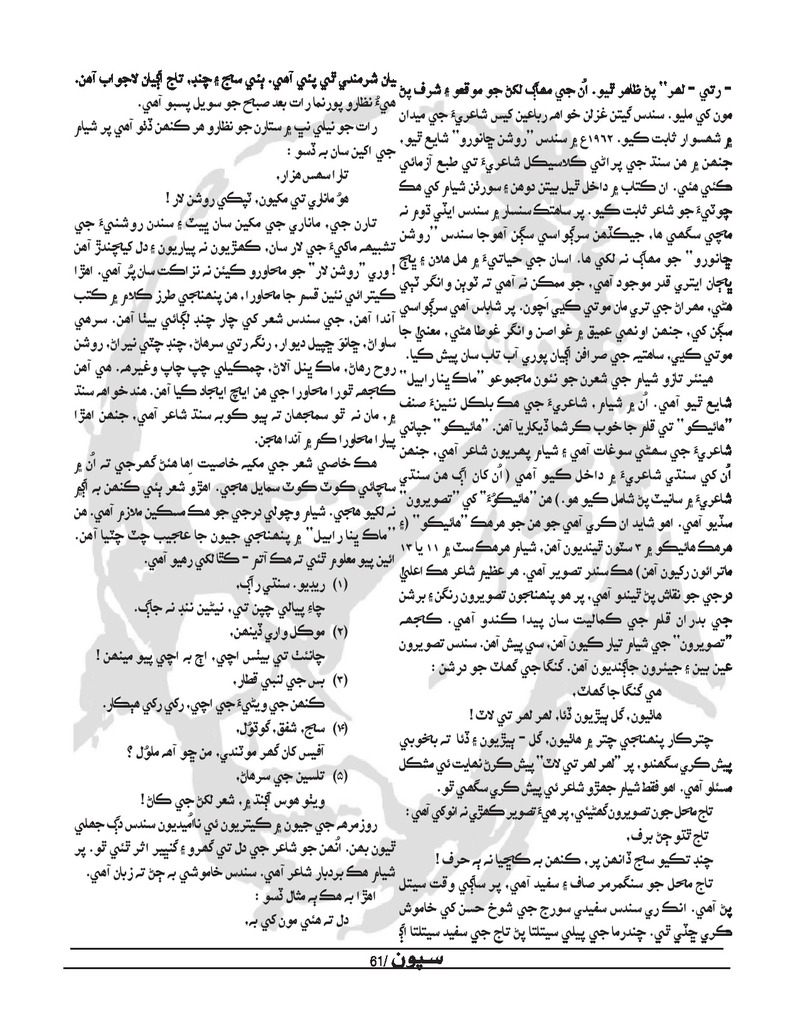 - رتي - لھر" پڻ ظاھر ٿيو. اُن جي مھاڳ لکڻ جو موقعو ۽ شرف پڻ
مون کي مليو. سندس گيتن غزلن خواھ رباعين کيس شاعريءَ جي ميدان
۾ شھسوار ثابت ڪيو. ۱۹۶۲ع ۾ سندس "روشن ڇانورو" شايع ٿيو،
جنھن ۾ ھن سنڌ جي پراڻي ڪلاسيڪل شاعريءَ تي طبع آزمائي
ڪئي ھئي. ان ڪتاب ۾ داخل ٿيل بيتن دوھن ۽ سورٺن شيام کي ھڪ
چوٽيءَ جو شاعر ثابت ڪيو. پر ساھتڪ سنسار ۾ سندس ايڏي ڌوم نہ
مچي سگھي ھا، جيڪڏھن سرڳواسي سڳن آھوجا سندس "روشن
ڇانورو" جو مھاڳ نہ لکي ھا. اسان جي حياتيءَ ۾ ھل ھلان ۽ ڀڄ
ڀڄان ايتري قدر موجود آھي، جو ممڪن نہ آھي تہ ٽوٻن وانگر ٽٻي
ھڻي، مھراڻ جي تري مان موتي ڪڍي اچون. پر شاباس آھي سرڳواسي
سڳن کي، جنھن اونھي عميق ۾ غواصن وانگر غوطا ھڻي، معنيٰ جا
موتي ڪڍي، ساھتيہ جي صرافن اڳيان پوري آب تاب سان پيش ڪيا.
ھينئر تازو شيام جي شعرن جو نئون مجموعو "ماڪ ڀنا رابيل"
شايع ٿيو آھي. اُن ۾ شيام، شاعريءَ جي ھڪ بلڪل نئينءَ صنف
"ھائيڪو" تي قلم جا خوب ڪرشما ڏيکاريا آھن. "ھائيڪو" جپاني
شاعريءَ جي سھڻي سوغات آھي ۽ شيام پھريون شاعر آھي، جنھن
اُن کي سنڌي شاعريءَ ۾ داخل ڪيو آھي (اُن کان اڳ ھن سنڌي
شاعريءَ ۾ سانيٽ پڻ شامل ڪيو ھو.) ھن "ھائيڪوُءَ" کي "تصويرون"
سڏيو آھي. اھو شايد ان ڪري آھي جو ھن جو ھرھڪ "ھائيڪو" (۽
ھرھڪ ھائيڪو ۾ ۳ سٽون ٿينديون آھن، شيام ھرھڪ سٽ ۾ ۱۱ يا ۱۳
ماترائون رکيون آھن) ھڪ سندر تصوير آھي. ھر عظيم شاعر ھڪ اعليٰ
درجي جو نقاش پڻ ٿيندو آھي، پر ھو پنھنجون تصويرون رنگن ۽ برشن
جي بدران قلم جي ڪماليت سان پيدا ڪندو آھي. ڪجھہ
"تصويرون" جي شيام تيار ڪيون آھن، سي پيش آھن. سندس تصويرون
عين ٻين ۽ جيئرون جاڳنديون آھن. گنگا جي گھاٽ جو درشن :
ھي گنگا جا گھاٽ،
ھاٿيون، گل ٻيڙيون ڏئا، لھر لھر تي لاٽ !
چترڪار پنھنجي چتر ۾ ھاٿيون، گل - ٻيڙيون ۽ ڏئا تہ بخوبي
پيش ڪري سگھندو، پر "لھر لھر تي لاٽ" پيش ڪرڻ نھايت ئي مشڪل
مسئلو آھي. اھو فقط شيام جھڙو شاعر ئي پيش ڪري سگھي ٿو.
تاج محل جون تصويرون گھڻيئي، پر ھيءَ تصوير ڪھڙي نہ انوکي آھي :
تاج ٿڌو ڄڻ برف،
چنڊ تڪيو سج ڏانھن پر، ڪنھن بہ ڪڇيا نہ ٻہ حرف !
تاج محل جو سنگمرمر صاف ۽ سفيد آھي، پر ساڳي وقت سيتل
پڻ آھي. انڪري سندس سفيدي سورج جي شوخ حسن کي خاموش
ڪري ڇڏي ٿي. چندرما جي پيلي سيتلتا پڻ تاج جي سفيد سيتلتا اڳ
يان شرمندي ٿي پئي آھي. ٻئي سج ۽ چنڊ، تاج اڳيان لاجواب آھن.
ھيءُ نظارو پورنما رات بعد صبح جو سويل پسبو آھي.
رات جو نيلي نڀ ۾ ستارن جو نظارو ھر ڪنھن ڏٺو آھي پر شيام
جي اکين سان بہ ڏسو :
تارا سھس ھزار،
ھوُ ماناري تي مکيون، ٽپڪي روشن لار !
تارن جي، ماناري جي مکين سان ڀيٽ ۽ سندن روشنيءَ جي
تشبيھہ ماکيءَ جي لار سان، ڪھڙيون نہ پياريون ۽ دل کيچندڙ آھن
! وري "روشن لار" جو محاورو ڪيئن نہ نزاڪت سان ڀرُ آھي. اھڙا
ڪيترائي نئين قسم جا محاورا، ھن پنھنجي طرز ڪلام ۾ ڪتب
آندا آھن، جي سندس شعر کي چار چنڊ لڳائي بيٺا آھن. سرھي
ساواڻ، ڇانوَ ڇپيل ديوار، رنگہ رتي سرھاڻ، چنڊ چٽي نيراڻ، روشن
روح رھاڻ، ماڪ ڀنل آلاڻ، چمڪيلي چپ چاپ وغيرھہ. ھي آھن
ڪجھہ ٿورا محاورا جي ھن ايجاد ڪيا آھن. ھند خواھہ سنڌ
۾، مان نہ ٿو سمجھان تہ ٻيو ڪوبہ سنڌ شاعر آھي، جنھن اھڙا
پيارا محاورا ڪم ۾ آندا ھجن.
ھڪ خاصي شعر جي مکيہ خاصيت اِھا ھئڻ گھرجي تہ اُن ۾
سچائي ڪوٽ ڪوٽ سمايل ھجي. اھڙو شعر ٻئي ڪنھن بہ اڳہ
نہ لکيو ھجي. شيام وچولي درجي جو ھڪ مسڪين ملازم آھي. ھن
"ماڪ ڀنا رابيل" ۾ پنھنجي جيون جا عجيب چٽ چٽيا آھن.
ائين پيو معلوم ٿئي تہ ھڪ آتم - ڪٿا لکي رھيو آھي.
(۱) ريڊيو. سنڌي راڳ،
چاءِ پيالي چپن تي، نيڻين ننڊ نہ جاڳ.
(۲) موڪل واري ڏينھن،
چانئٺ تي بيٺس اچي، اڄ بہ اچي پيو مينھن !
(۳) بس جي لنبي قطار،
ڪنھن جي ويڻيءَ جي اچي، رکي رکي ھٻڪار.
(۴) سج، شفق، گوٽوُل،
آفيس کان گھر موٽندي، من ڇو آھہ ملوُل ؟
(۵) تلسين جي سرھاڻ،
ويٺو ھوس آڱنڌ ۾، شعر لکڻ جي ڪاڻ !
روز مرھہ جي جيون ۾ ڪيتريون ئي نااُميديون سندس دڳ جھلي
ٿيون بھن. اُنھن جو شاعر جي دل تي گھرو ۽ گنڀير اثر ٿئي ٿو. پر
شيام ھڪ بردبار شاعر آھي. سندس خاموشي بہ ڄڻ تہ زبان آھي.
اھڙا بہ ھڪ ٻہ مثال ڏسو :
دل تہ ھئي مون کي بہ،
سپون /61